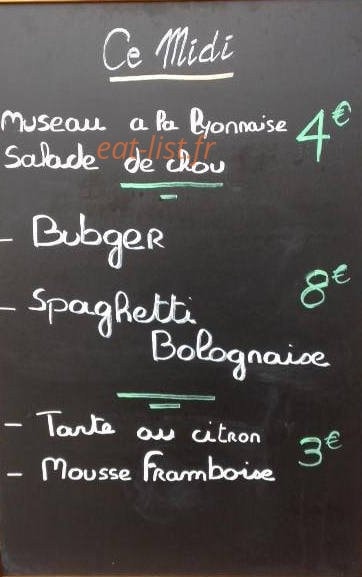 Ce Midi
Museau a la Lyonnaise 4€
Salade de chou
eat-list.fr
- Bubger
- Spaghetti 8€
Bolognaise
- Tarte au citron 3€
- Mousse Framboise